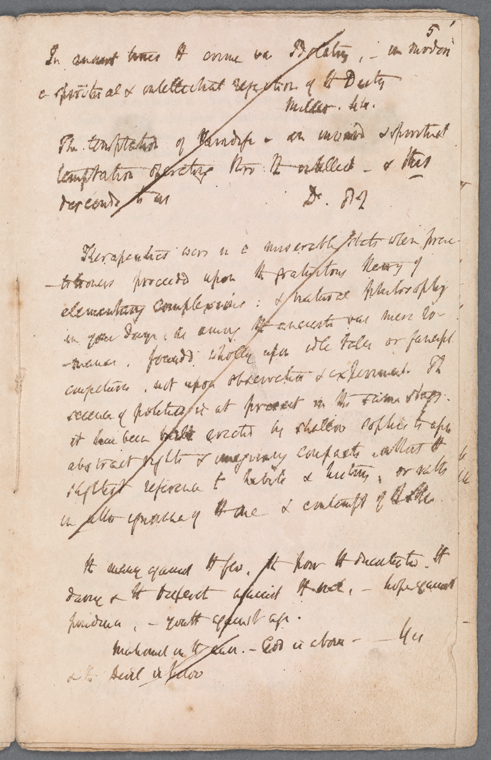 5
In ancient times the crime was Idolatry, - in modern
a spiritual & intellectual rejection of the Deity
The temptation of Paradise - an inward & spiritual
temptation operating thro the intellect - & this
descends to us Dr.
Therapeutics were in a miserable state when prac-
-titioners proceeded upon the gratuitous theory of
elementary complexions: & natural philosophy
in your days, as among the ancients was mere ro-
-mance, founded wholly upon idle tales or fanciful
conjectures, not upon observation & experiment. The
science of politics is at present in the same stage.
it has been erected by shallow sophists upon
abstract rights & imaginary compacts, without the
slightest reference to habits & history, or rather
in utter ignorance of the one & contempt of the other.
The many against the few, the poor the
daring & the against the - hope against
prudence, - youth against age.
- God is above -
& the Devil is below